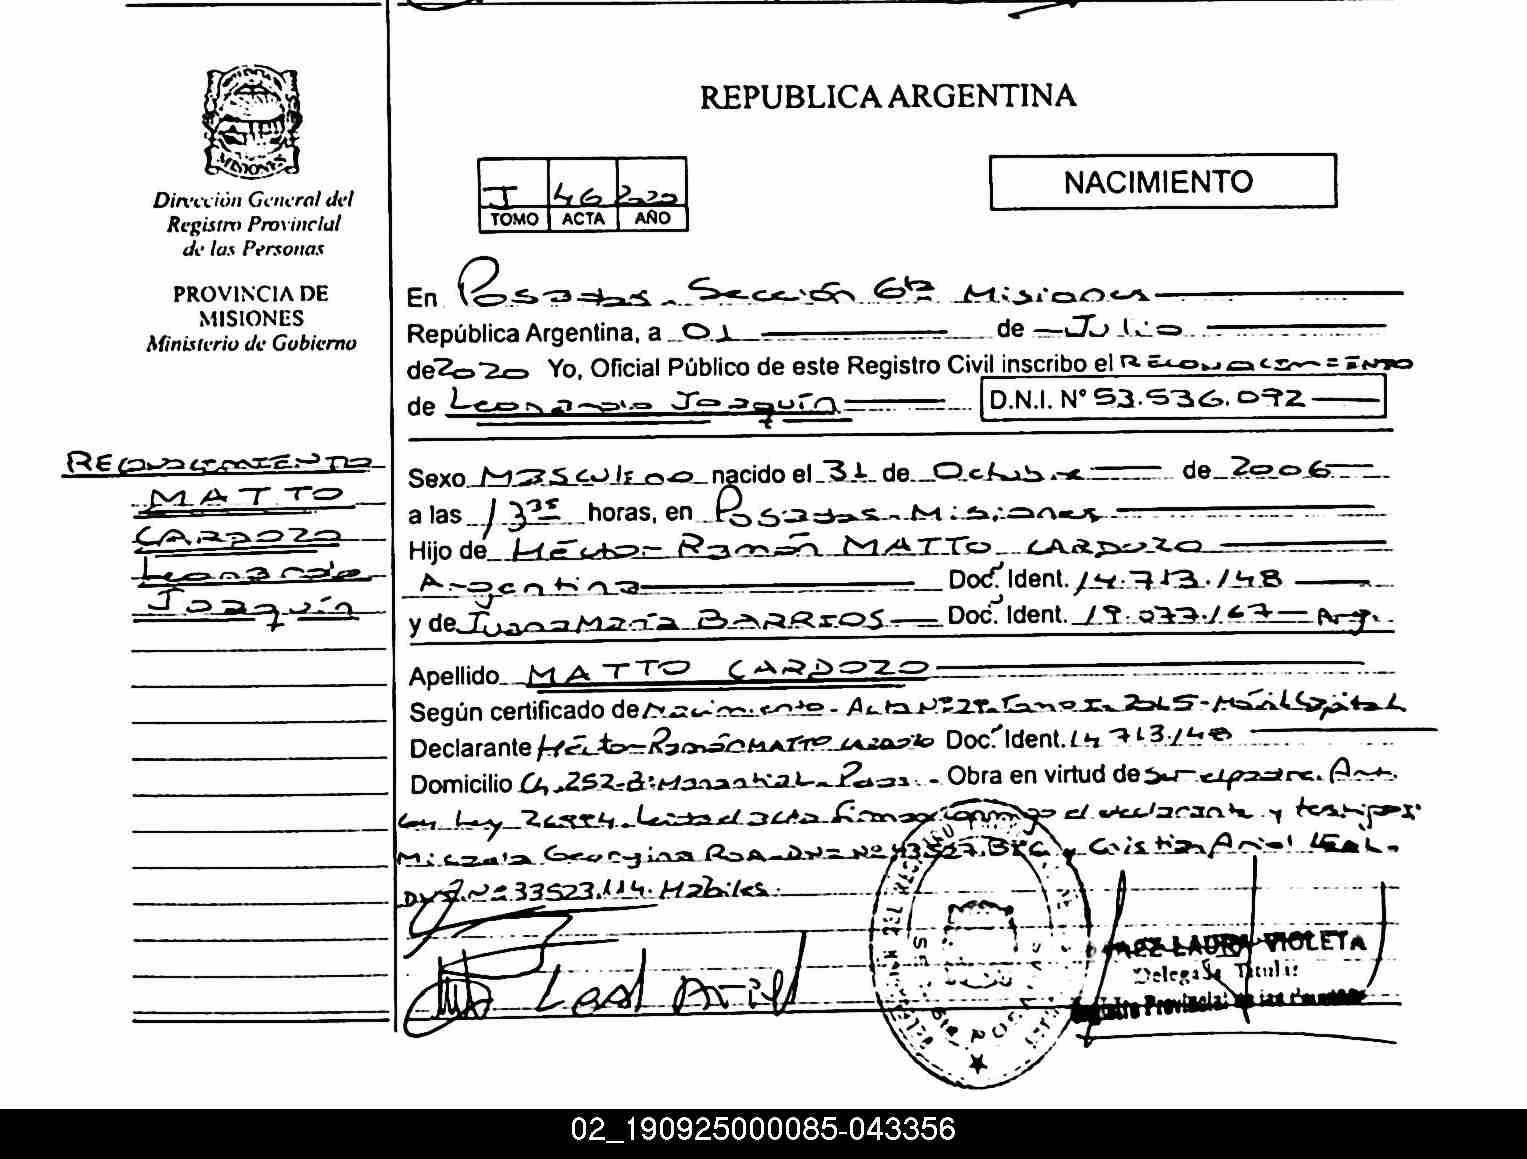 MISIONES
Dirección General del
Registro Provincial
de las Personas
PROVINCIA DE
MISIONES
Ministerio de Gobierno
RECONOCIMIENTO
MATTO
CARDOZO
Leonardo
Joaquín
REPUBLICA ARGENTINA
I 46 2020
TOMO ACTA AÑO
NACIMIENTO
En Posadas - Sección 6ta Misiones
República Argentina, a 01 de Julio
de 2020 Yo, Oficial Público de este Registro Civil inscribo el RECONOCIMIENTO
de Leonardo Joaquín D.N.I. N° 53.536.092
Sexo Masculino nacido el 31 de Octubre de 2006
a las 13 35 horas, en Posadas - Misiones
Hijo de Héctor Ramón MATTO CARDOZO
Argentina Doc. Ident. 14.713.148
y de Juana María BARRIOS Doc. Ident. 19.077.167 Arg.
Apellido MATTO CARDOZO
Según certificado de Nacimiento - Acta Tomo I
Declarante Héctor Ramón MATTO CARDOZO Doc. Ident. 14.713.148
Domicilio Ch. 252 - B: Manantial - Pdas. - Obra en virtud de ser el padre. Art.
Ley 26994. Leída el acta firman conmigo el declarante y testigos:
Micaela Georgina ROA - DNI N° y Cristian Ariel LEAL -
DNI N° 33523.114. Hábiles.
Leal Ariel
LAURA VIOLETA
Delegada Titular
Registro Provincial de las Personas
POSADAS
02_190925000085-043356